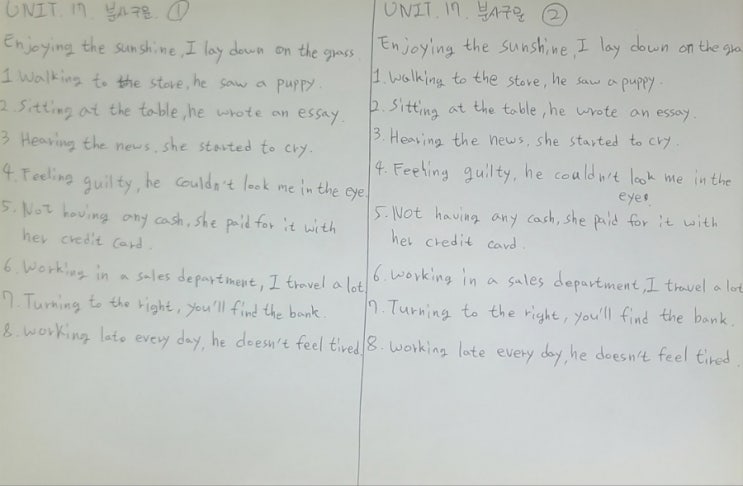 UNIT. 17. 분사구문 ①
Enjoying the sunshine, I lay down on the grass
1 Walking to the store, he saw a puppy.
2. Sitting at the table, he wrote an essay.
3 Hearing the news, she started to cry.
4. Feeling guilty, he couldn't look me in the eye.
5. Not having any cash, she paid for it with
her credit card.
6. Working in a sales department, I travel a lot
7. Turning to the right, you'll find the bank.
8. Working late every day, he doesn't feel tired.
UNIT. 17. 분사구문 ②
Enjoying the sunshine, I lay down on the gra
1. Walking to the store, he saw a puppy.
2. Sitting at the table, he wrote an essay.
3. Hearing the news, she started to cry.
4. Feeling guilty, he couldn't look me in the
eye.
5. Not having any cash, she paid for it with
her credit card.
6. Working in a sales department, I travel a lot
7. Turning to the right, you'll find the bank.
8. Working late every day, he doesn't feel tired.